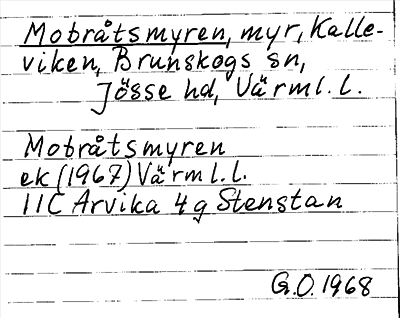 Mobråtsmyren, myr, Kalle-
viken, Brunskogs sn,
Jösse hd, Värml. l.
Mobråtsmyren
ek (1967) Värml. l.
11C Arvika 4g Stenstan
G.O. 1968